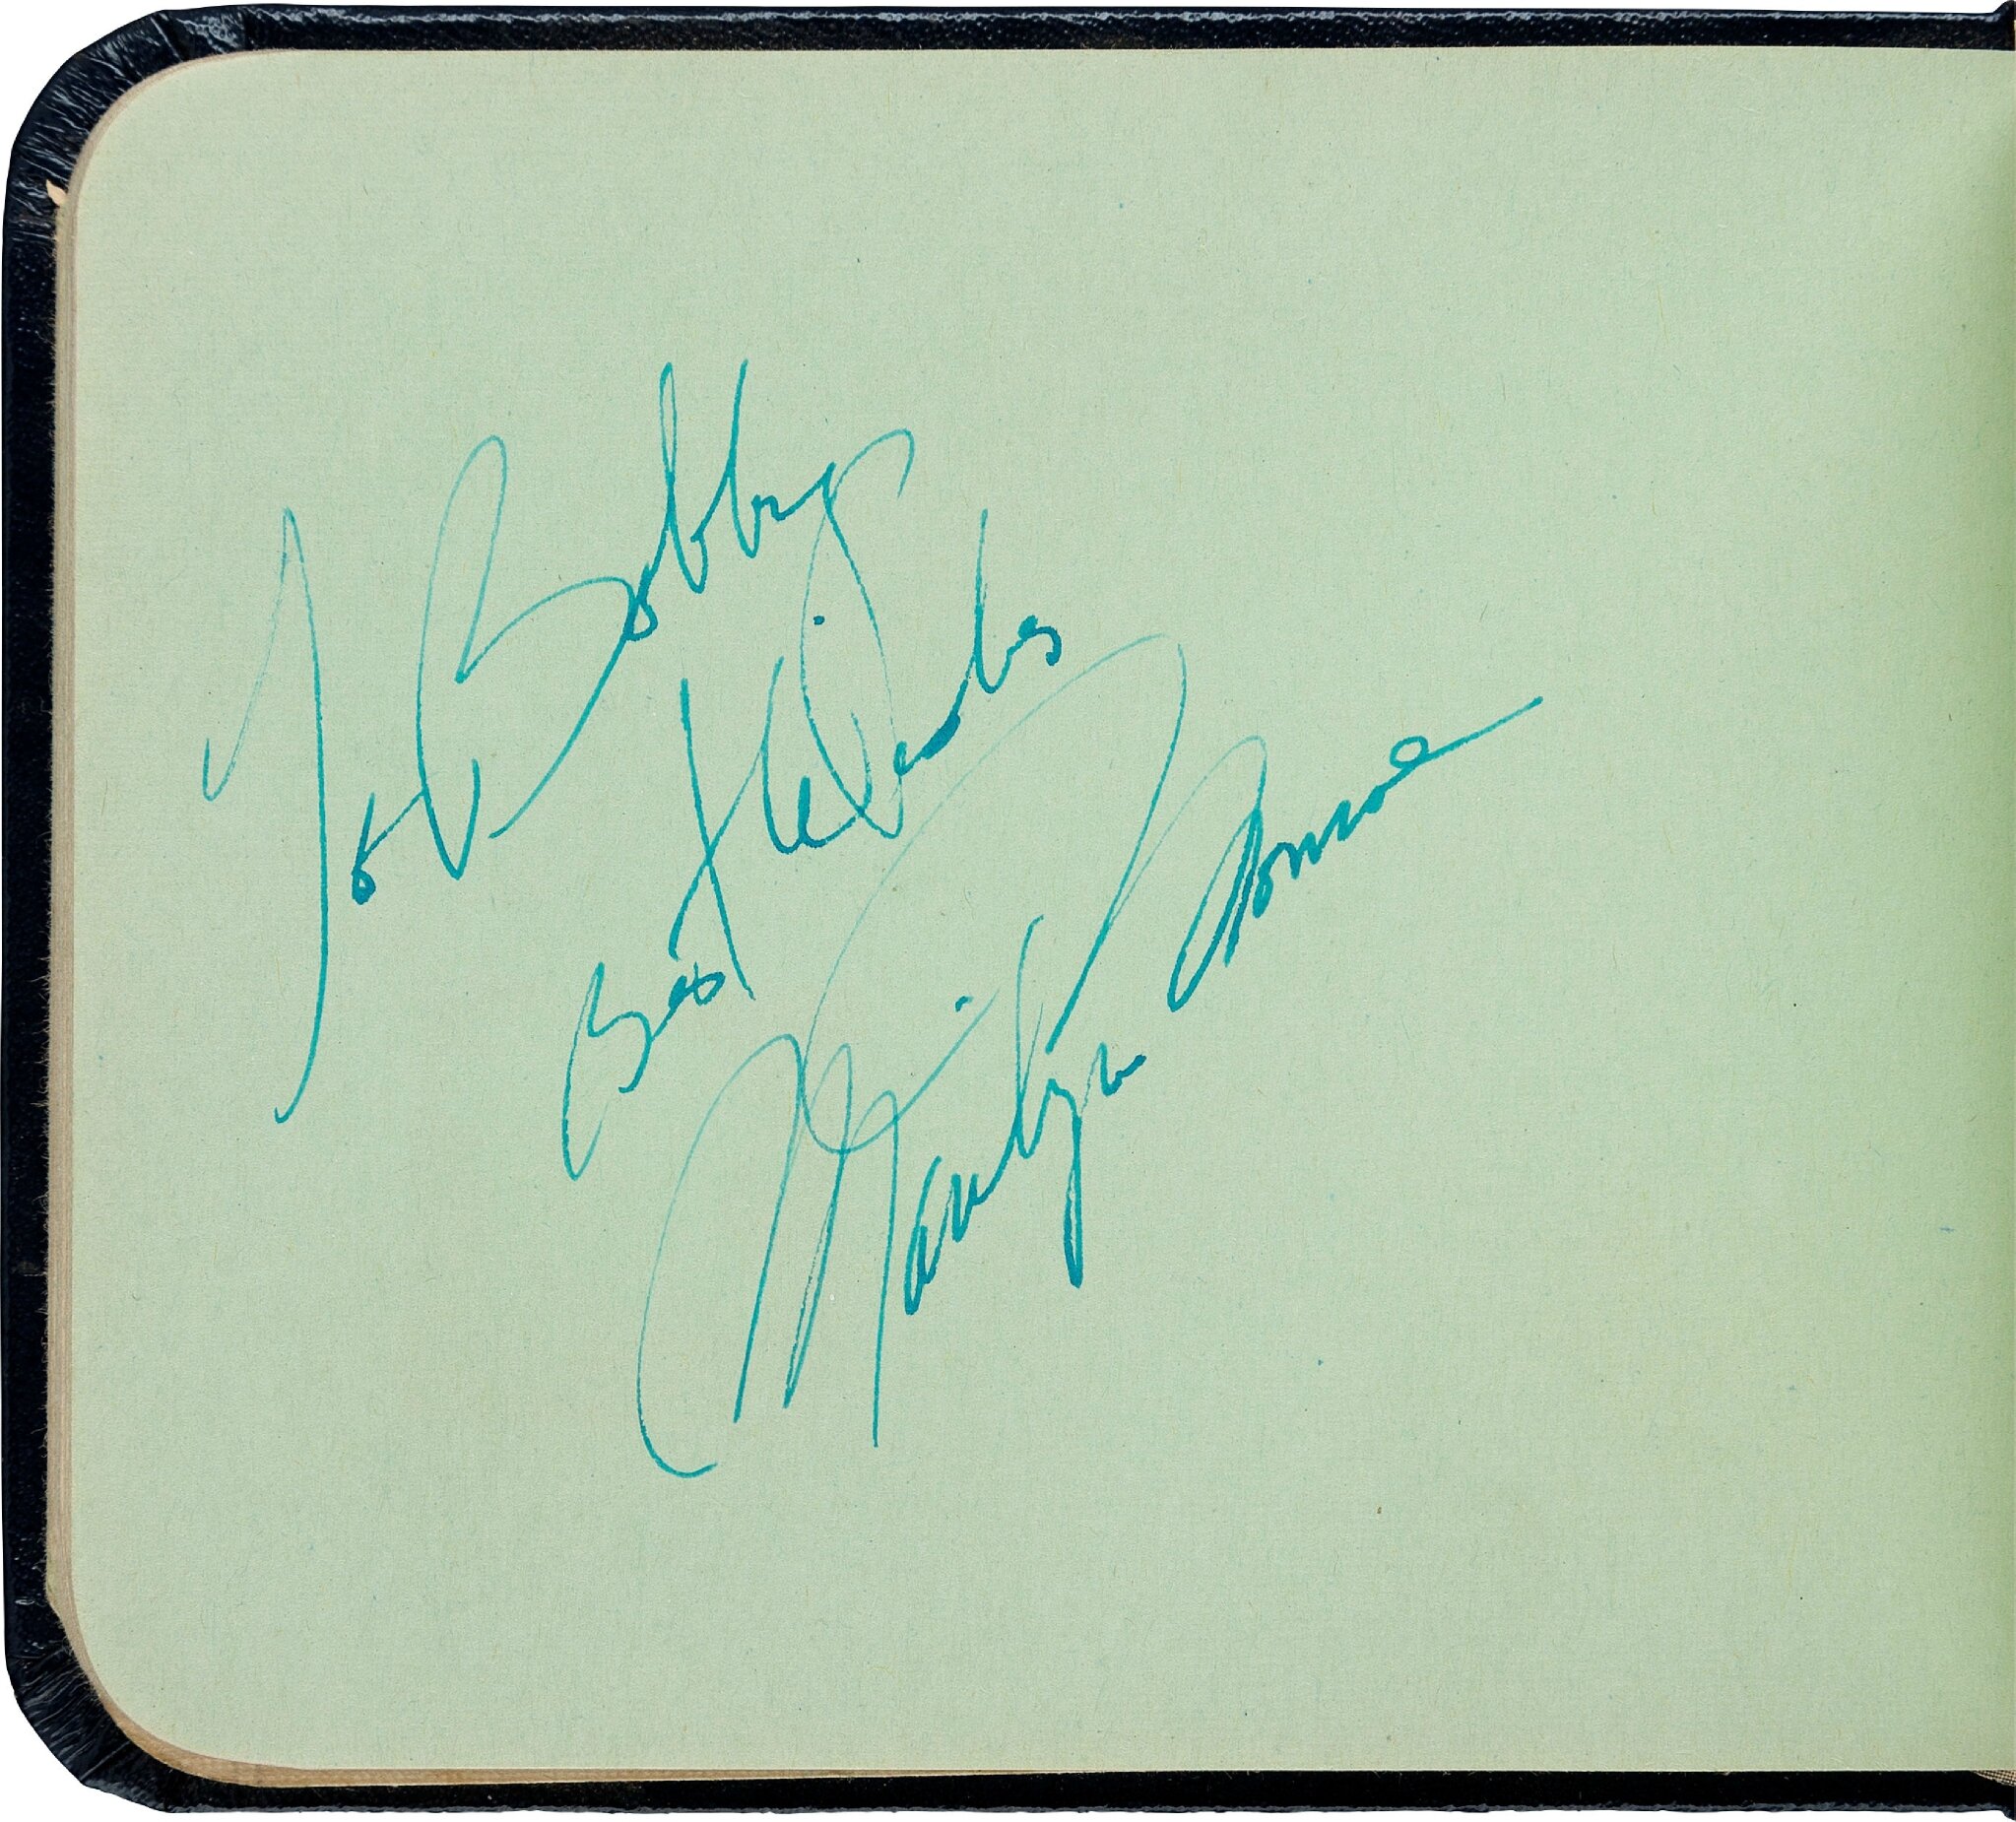 To Bobby
Best Wishes
Marilyn Monroe